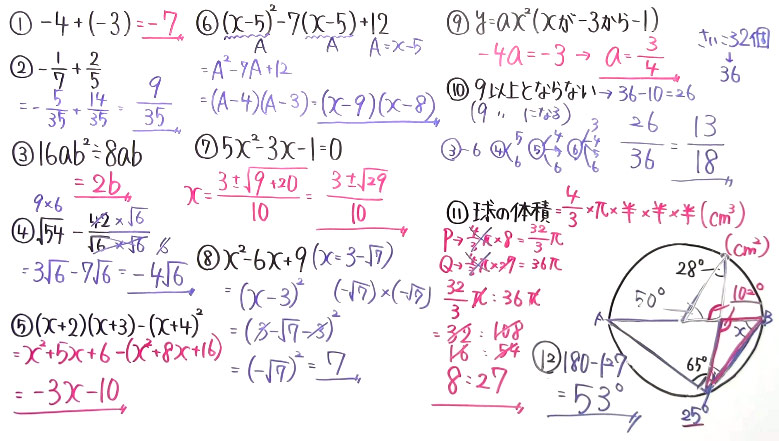 ① -4+(-3)=-7
② -1/7+2/5
=-5/35+14/35=9/35
③ 16ab²÷8ab
=2b
9×6
④ √54-42×√6/√6×√6 6
=3√6-7√6=-4√6
⑤ (x+2)(x+3)-(x+4)²
=x²+5x+6-(x²+8x+16)
=-3x-10
⑥ (x-5)²-7(x-5)+12
A A A=x-5
=A²-7A+12
=(A-4)(A-3)=(x-9)(x-8)
⑦ 5x²-3x-1=0
x=3±√9+20/10=3±√29/10
⑧ x²-6x+9(x=3-√7)
=(x-3)² (-√7)×(-√7)
=(3-√7-3)²
=(-√7)²=7
⑨ y=ax²(xが-3から-1)
-4a=-3→a=3/4
さいころ2個
↓
36
⑩ 9以上とならない→36-10=26
(9 〃 になる)
③-6 ④<5 6 ⑤<4 5 6 ⑥<3 4 5 6
26/36=13/18
⑪ 球の体積=4/3×π×半×半×半(cm³)
P→4/3π×8=32/3π
Q→4/3π×27=36π
32/3π:36π
=32:108
16:54
8:27
(cm²)
28°
102°
50°
A
B
x
65°
25°
⑫ 180-127
=53°